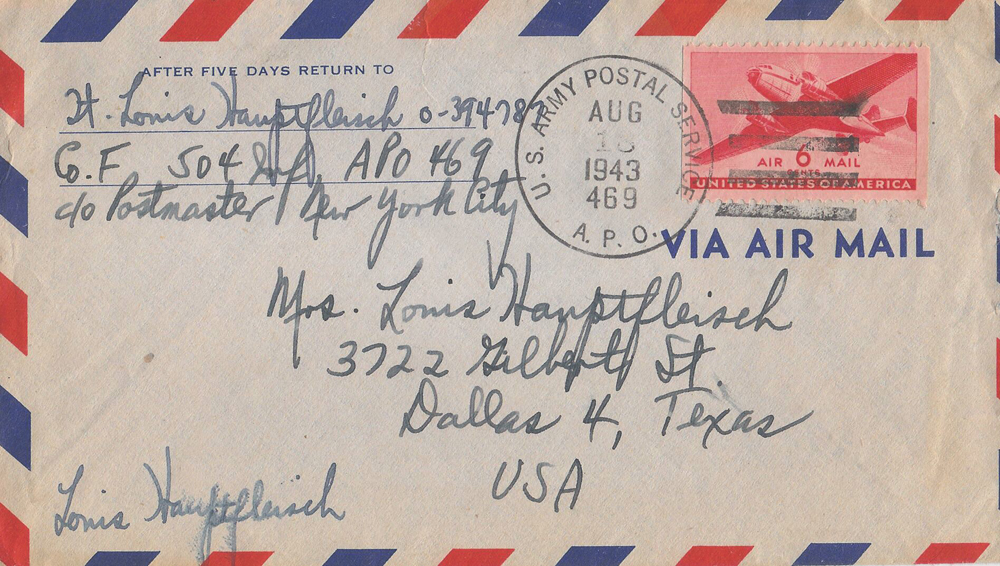 AFTER FIVE DAYS RETURN TO
Lt. Louis Hauptfleisch O-394787
Co. F 504 Inf. APO 469
c/o Postmaster New York City
U.S. ARMY POSTAL SERVICE
AUG
1943
469
A. P. O.
AIR 6 MAIL
CENTS
UNITED STATES OF AMERICA
VIA AIR MAIL
Mrs. Louis Hauptfleisch
3722 Gilbert St.
Dallas 4, Texas
USA
Louis Hauptfleisch